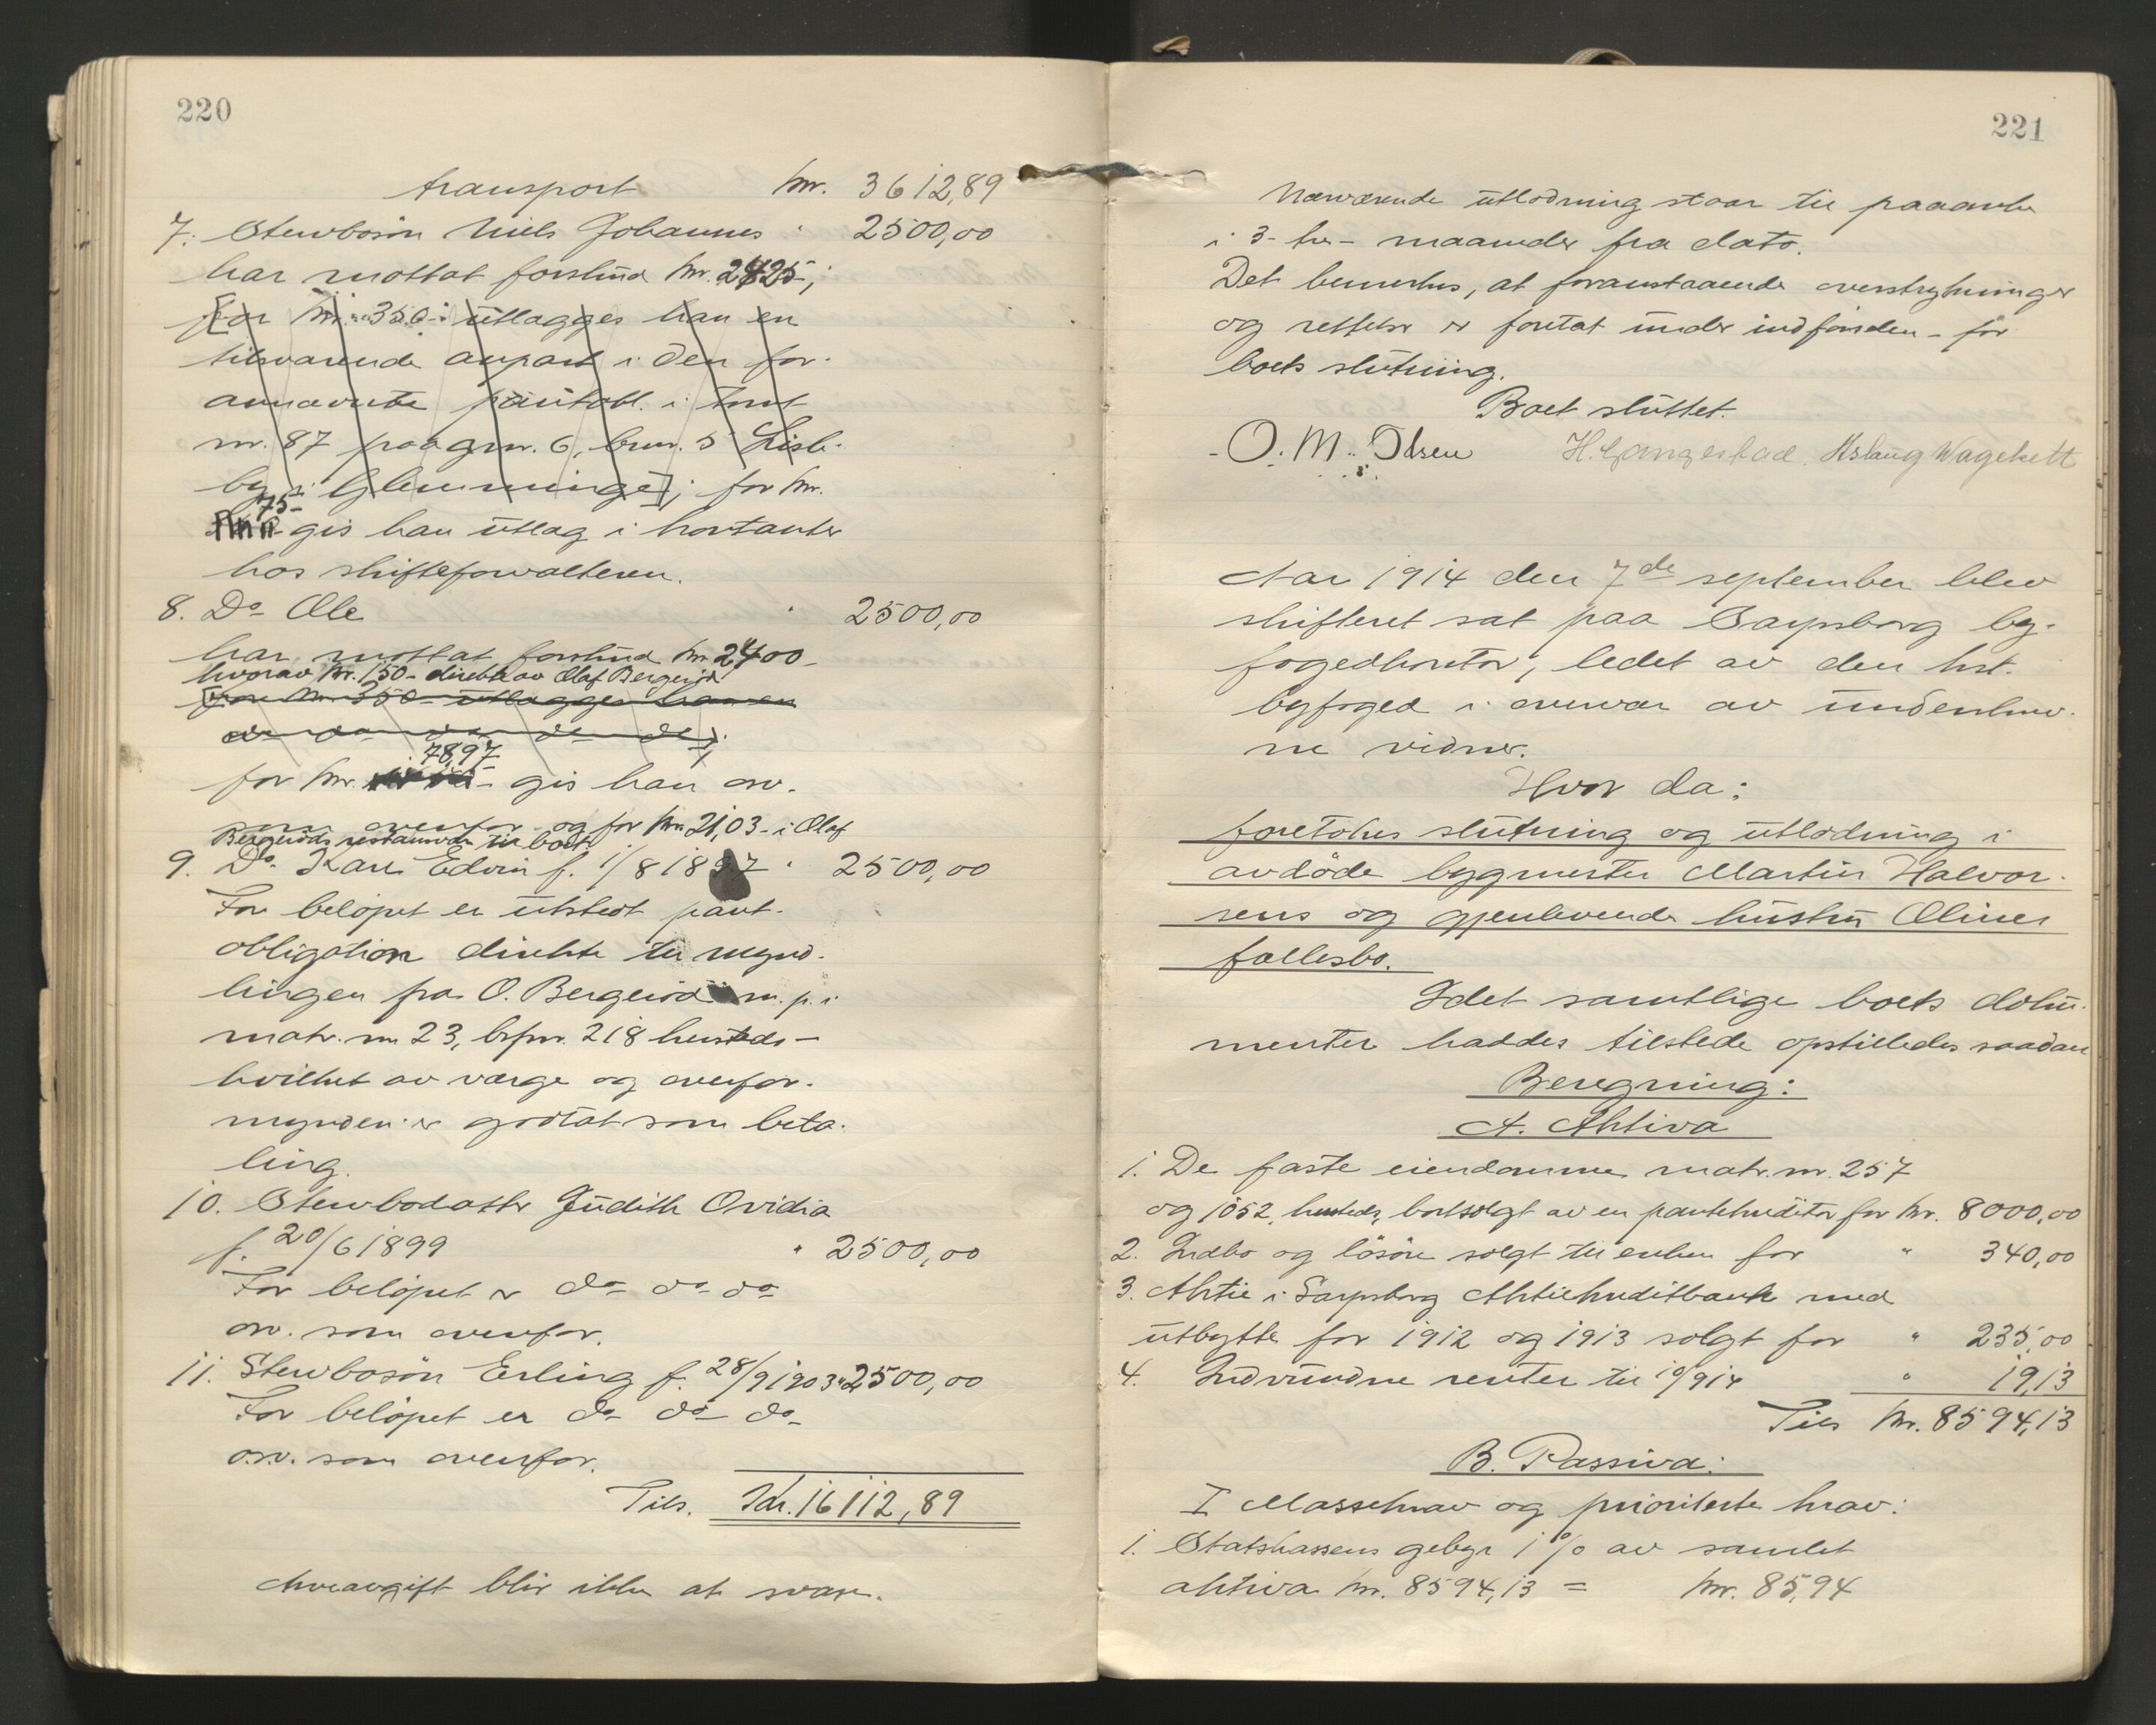 220
transport kr. 3612,89
7. Stervbosön Niels Johannes " 2500,00
har mottat forskud kr. 2425,
[for kr. 350 utlægges han en
tilsvarende anpart i den for-
annævnte pantobl. i tomt
nr. 87 paa gnr. 6, brnr. 5 Lisle-
by i Glemminge]; for kr.
75-
gis han utlag i kontanter
hos skifteforvalteren.
8. Do Ole " 2500,00
har mottat forskud kr 2400-
hvorav kr. 150- direkte av Olaf Bergerød
[for kr 350- utlægges han en
do do do do do]
78,97
for kr. gis han osv.
som ovenfor og for kr. 21,03- i Olaf
Bergerøds restanse til boet.
9. Do. Kare Edvin f. 1/8 1897 " 2500,00
For belöpet er utstedt pant-
obligation direkte til mynd-
lingen fra O. Bergeröd m. p. i
matr. nr 23, brfnr. 218 hersteds-
hvilket av værge og overfor-
mynderi er godtat som beta-
ling.
10. Stervbodatter Judith Ovidia
f. 20/6 1899 " 2500,00
For belöpet er do do do
osv. som ovenfor.
11. Stervbosön Erling f. 28/9 1903 " 2500,00
For belöpet er do do do
osv. som ovenfor.
Tils. Kr. 16112,89
Arveavgift blir ikke at svare.
221
Nærværende utlodning staar til paaanke
i 3- tre- maaneder fra dato.
Det bemerkes, at foranstaaende overstrykninger
og rettelser er foretat under indförselen - för
boets slutning.
Boet sluttet.
O. M. Olsen H. Langestad. Aslaug Wagelsett
Aar 1914 den 7de september blev
skifteret sat paa Sarpsborg by-
fogedkontor, ledet av den kst.
byfoged i overvær av underskrev-
ne vidner.
Hvor da:
foretokes slutning og utlodning i
avdöde bygmester Martin Halvor-
sens og gjenlevende hustru Olines
fællesbo.
Idet samtlige boets doku-
menter haddes tilstede opstilledes saadan
Beregning:
A. Aktiva
1. De faste eiendomme matr. nr. 257
og 1052, hersteds, bortsolgt av en pantekreditor for kr. 8000,00
2. Indbo og lösöre solgt til enken for " 340,00
3. Aktie i Sarpsborg Aktiekreditbank med
utbytte for 1912 og 1913 solgt for " 235,00
4. Indvundne renter til 10/9 14 " 19,13
Tils kr. 8594,13
B. Passiva:
I Massekrav og prioriterte krav:
1. Statskassens gebyr 1% av samlet
aktiva kr. 8594,13 = kr. 85,94